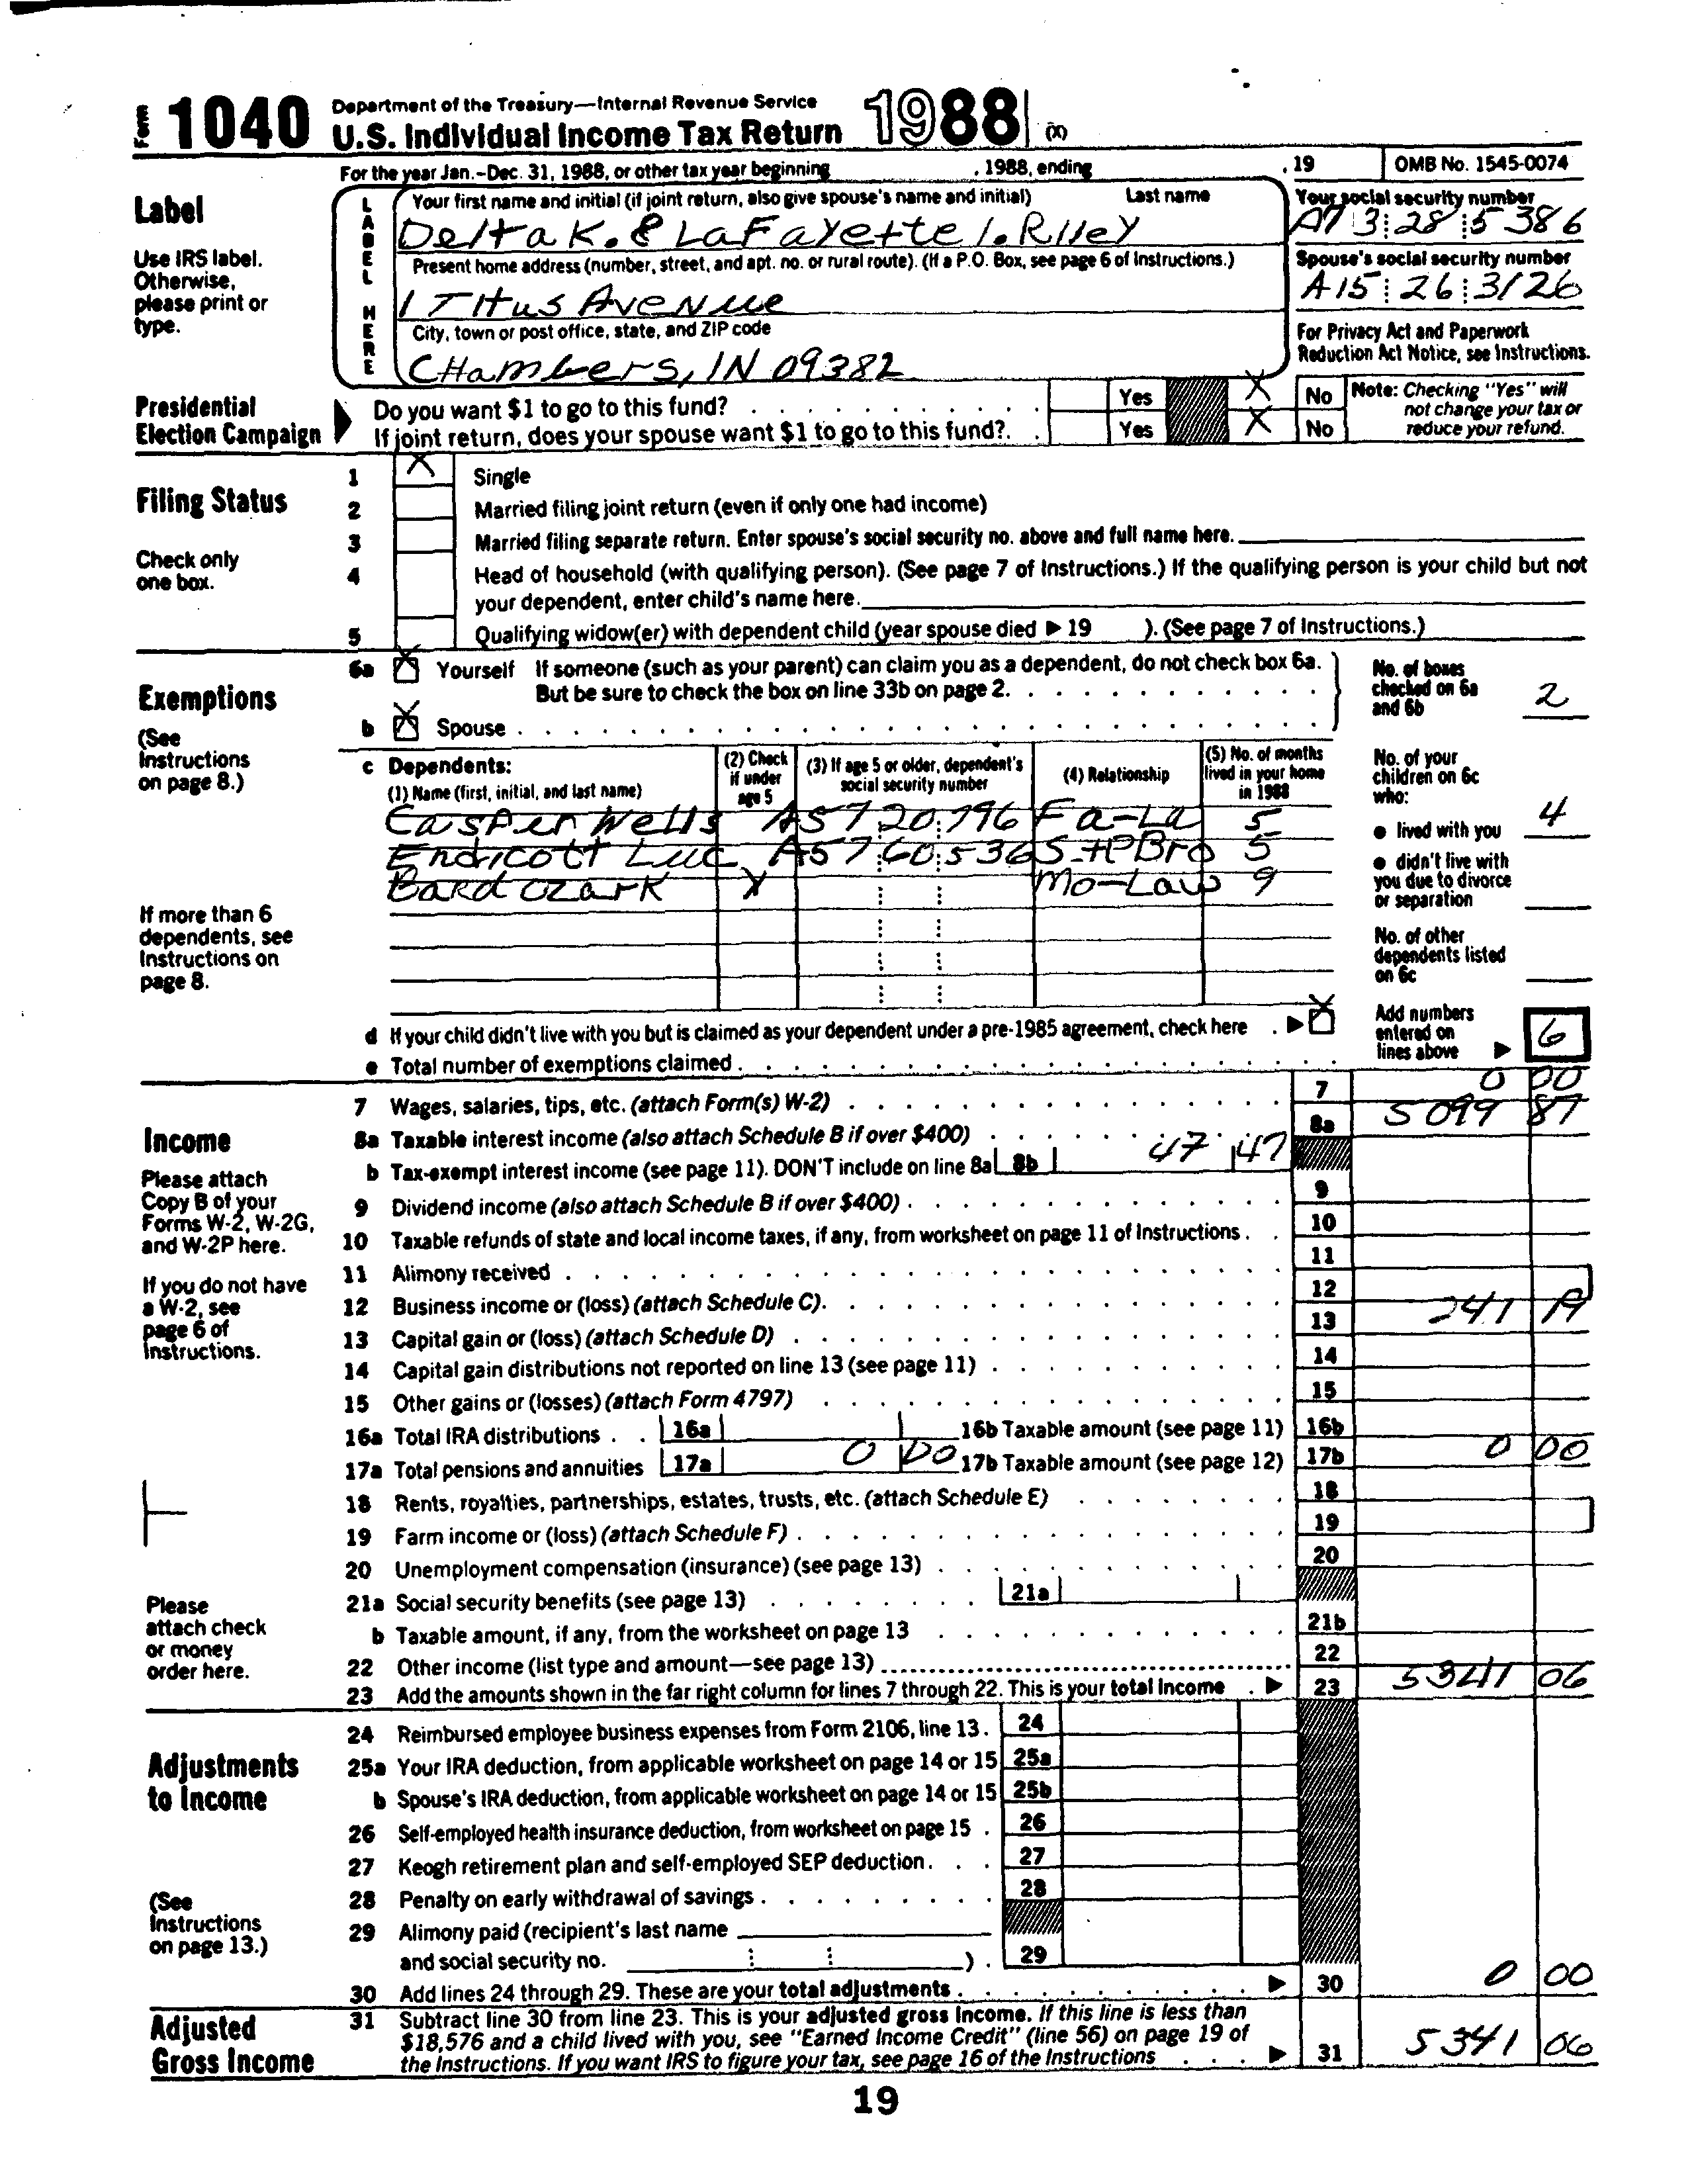 Form 1040 Department of the Treasury—Internal Revenue Service
U.S. Individual Income Tax Return 1988 (X)
For the year Jan.-Dec. 31, 1988, or other tax year beginning , 1988, ending , 19 OMB No. 1545-0074
Label
Use IRS label. Otherwise, please print or type.
LABEL HERE
Your first name and initial (if joint return, also give spouse's name and initial) Last name
Delta K. & LaFayette I. Riley
Your social security number
A7 3 28 5386
Present home address (number, street, and apt. no. or rural route). (If a P.O. Box, see page 6 of Instructions.)
1 Titus Avenue
Spouse's social security number
A15 26 3126
City, town or post office, state, and ZIP code
Chambers, IN 09382
For Privacy Act and Paperwork Reduction Act Notice, see Instructions.
Presidential Election Campaign
Do you want $1 to go to this fund? Yes X No
If joint return, does your spouse want $1 to go to this fund? Yes X No
Note: Checking "Yes" will not change your tax or reduce your refund.
Filing Status
Check only one box.
1 X Single
2 Married filing joint return (even if only one had income)
3 Married filing separate return. Enter spouse's social security no. above and full name here.
4 Head of household (with qualifying person). (See page 7 of Instructions.) If the qualifying person is your child but not
your dependent, enter child's name here.
5 Qualifying widow(er) with dependent child (year spouse died ▶ 19 ). (See page 7 of Instructions.)
Exemptions
(See Instructions on page 8.)
6a X Yourself If someone (such as your parent) can claim you as a dependent, do not check box 6a.
But be sure to check the box on line 33b on page 2.
b X Spouse
No. of boxes checked on 6a and 6b 2
c Dependents:
(1) Name (first, initial, and last name) (2) Check if under age 5 (3) If age 5 or older, dependent's social security number (4) Relationship (5) No. of months lived in your home in 1988
Casper Wells A57 20 796 Fa-La 5
Endicott Luc A57 60 536 StPBro 5
Bard Ozark X Mo-Law 9
No. of your children on 6c who:
● lived with you 4
● didn't live with you due to divorce or separation
No. of other dependents listed on 6c
If more than 6 dependents, see Instructions on page 8.
d If your child didn't live with you but is claimed as your dependent under a pre-1985 agreement, check here ▶ X
e Total number of exemptions claimed
Add numbers entered on lines above ▶ 6
Income
Please attach Copy B of your Forms W-2, W-2G, and W-2P here.
If you do not have a W-2, see page 6 of Instructions.
Please attach check or money order here.
7 Wages, salaries, tips, etc. (attach Form(s) W-2) 7 0 00
8a Taxable interest income (also attach Schedule B if over $400) 8a 5099 87
b Tax-exempt interest income (see page 11). DON'T include on line 8a 8b 47 47
9 Dividend income (also attach Schedule B if over $400) 9
10 Taxable refunds of state and local income taxes, if any, from worksheet on page 11 of Instructions 10
11 Alimony received 11
12 Business income or (loss) (attach Schedule C) 12
13 Capital gain or (loss) (attach Schedule D) 13 241 19
14 Capital gain distributions not reported on line 13 (see page 11) 14
15 Other gains or (losses) (attach Form 4797) 15
16a Total IRA distributions 16a 16b Taxable amount (see page 11) 16b
17a Total pensions and annuities 17a 0 00 17b Taxable amount (see page 12) 17b 0 00
18 Rents, royalties, partnerships, estates, trusts, etc. (attach Schedule E) 18
19 Farm income or (loss) (attach Schedule F) 19
20 Unemployment compensation (insurance) (see page 13) 20
21a Social security benefits (see page 13) 21a
b Taxable amount, if any, from the worksheet on page 13 21b
22 Other income (list type and amount—see page 13) 22
23 Add the amounts shown in the far right column for lines 7 through 22. This is your total income ▶ 23 5341 06
Adjustments to Income
(See Instructions on page 13.)
24 Reimbursed employee business expenses from Form 2106, line 13. 24
25a Your IRA deduction, from applicable worksheet on page 14 or 15 25a
b Spouse's IRA deduction, from applicable worksheet on page 14 or 15 25b
26 Self-employed health insurance deduction, from worksheet on page 15 26
27 Keogh retirement plan and self-employed SEP deduction 27
28 Penalty on early withdrawal of savings 28
29 Alimony paid (recipient's last name
and social security no. ) 29
30 Add lines 24 through 29. These are your total adjustments ▶ 30 0 00
Adjusted Gross Income
31 Subtract line 30 from line 23. This is your adjusted gross income. If this line is less than
$18,576 and a child lived with you, see "Earned Income Credit" (line 56) on page 19 of
the Instructions. If you want IRS to figure your tax, see page 16 of the Instructions ▶ 31 5341 06
19